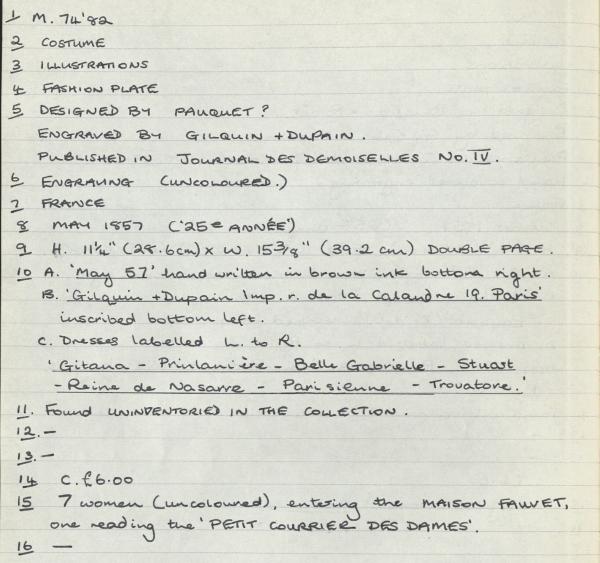 1 M. 74'82
2 COSTUME
3 ILLUSTRATIONS
4 FASHION PLATE
5 DESIGNED BY PAUQUET?
ENGRAVED BY GILQUIN + DUPAIN.
PUBLISHED IN JOURNAL DES DEMOISELLES No. IV.
6 ENGRAVING (UNCOLOURED.)
7 FRANCE
8 MAY 1857 ('25e ANNÉE')
9 H. 11¼" (28.6cm) x W. 15⅜" (39.2 cm) DOUBLE PAGE.
10 A. 'May 57' hand written in brown ink bottom right.
B. 'Gilquin + Dupain Imp. r. de la Calandre 19. Paris'
inscribed bottom left.
C. Dresses labelled L. to R.
'Gitana - Prinlanière - Belle Gabrielle - Stuart
- Reine de Nasarre - Parisienne - Trovatore.'
11. Found UNINVENTORIED IN THE COLLECTION.
12. -
13. -
14 C. £6.00
15 7 women (uncoloured), entering the MAISON FAUVET,
one reading the 'PETIT COURRIER DES DAMES'.
16 —